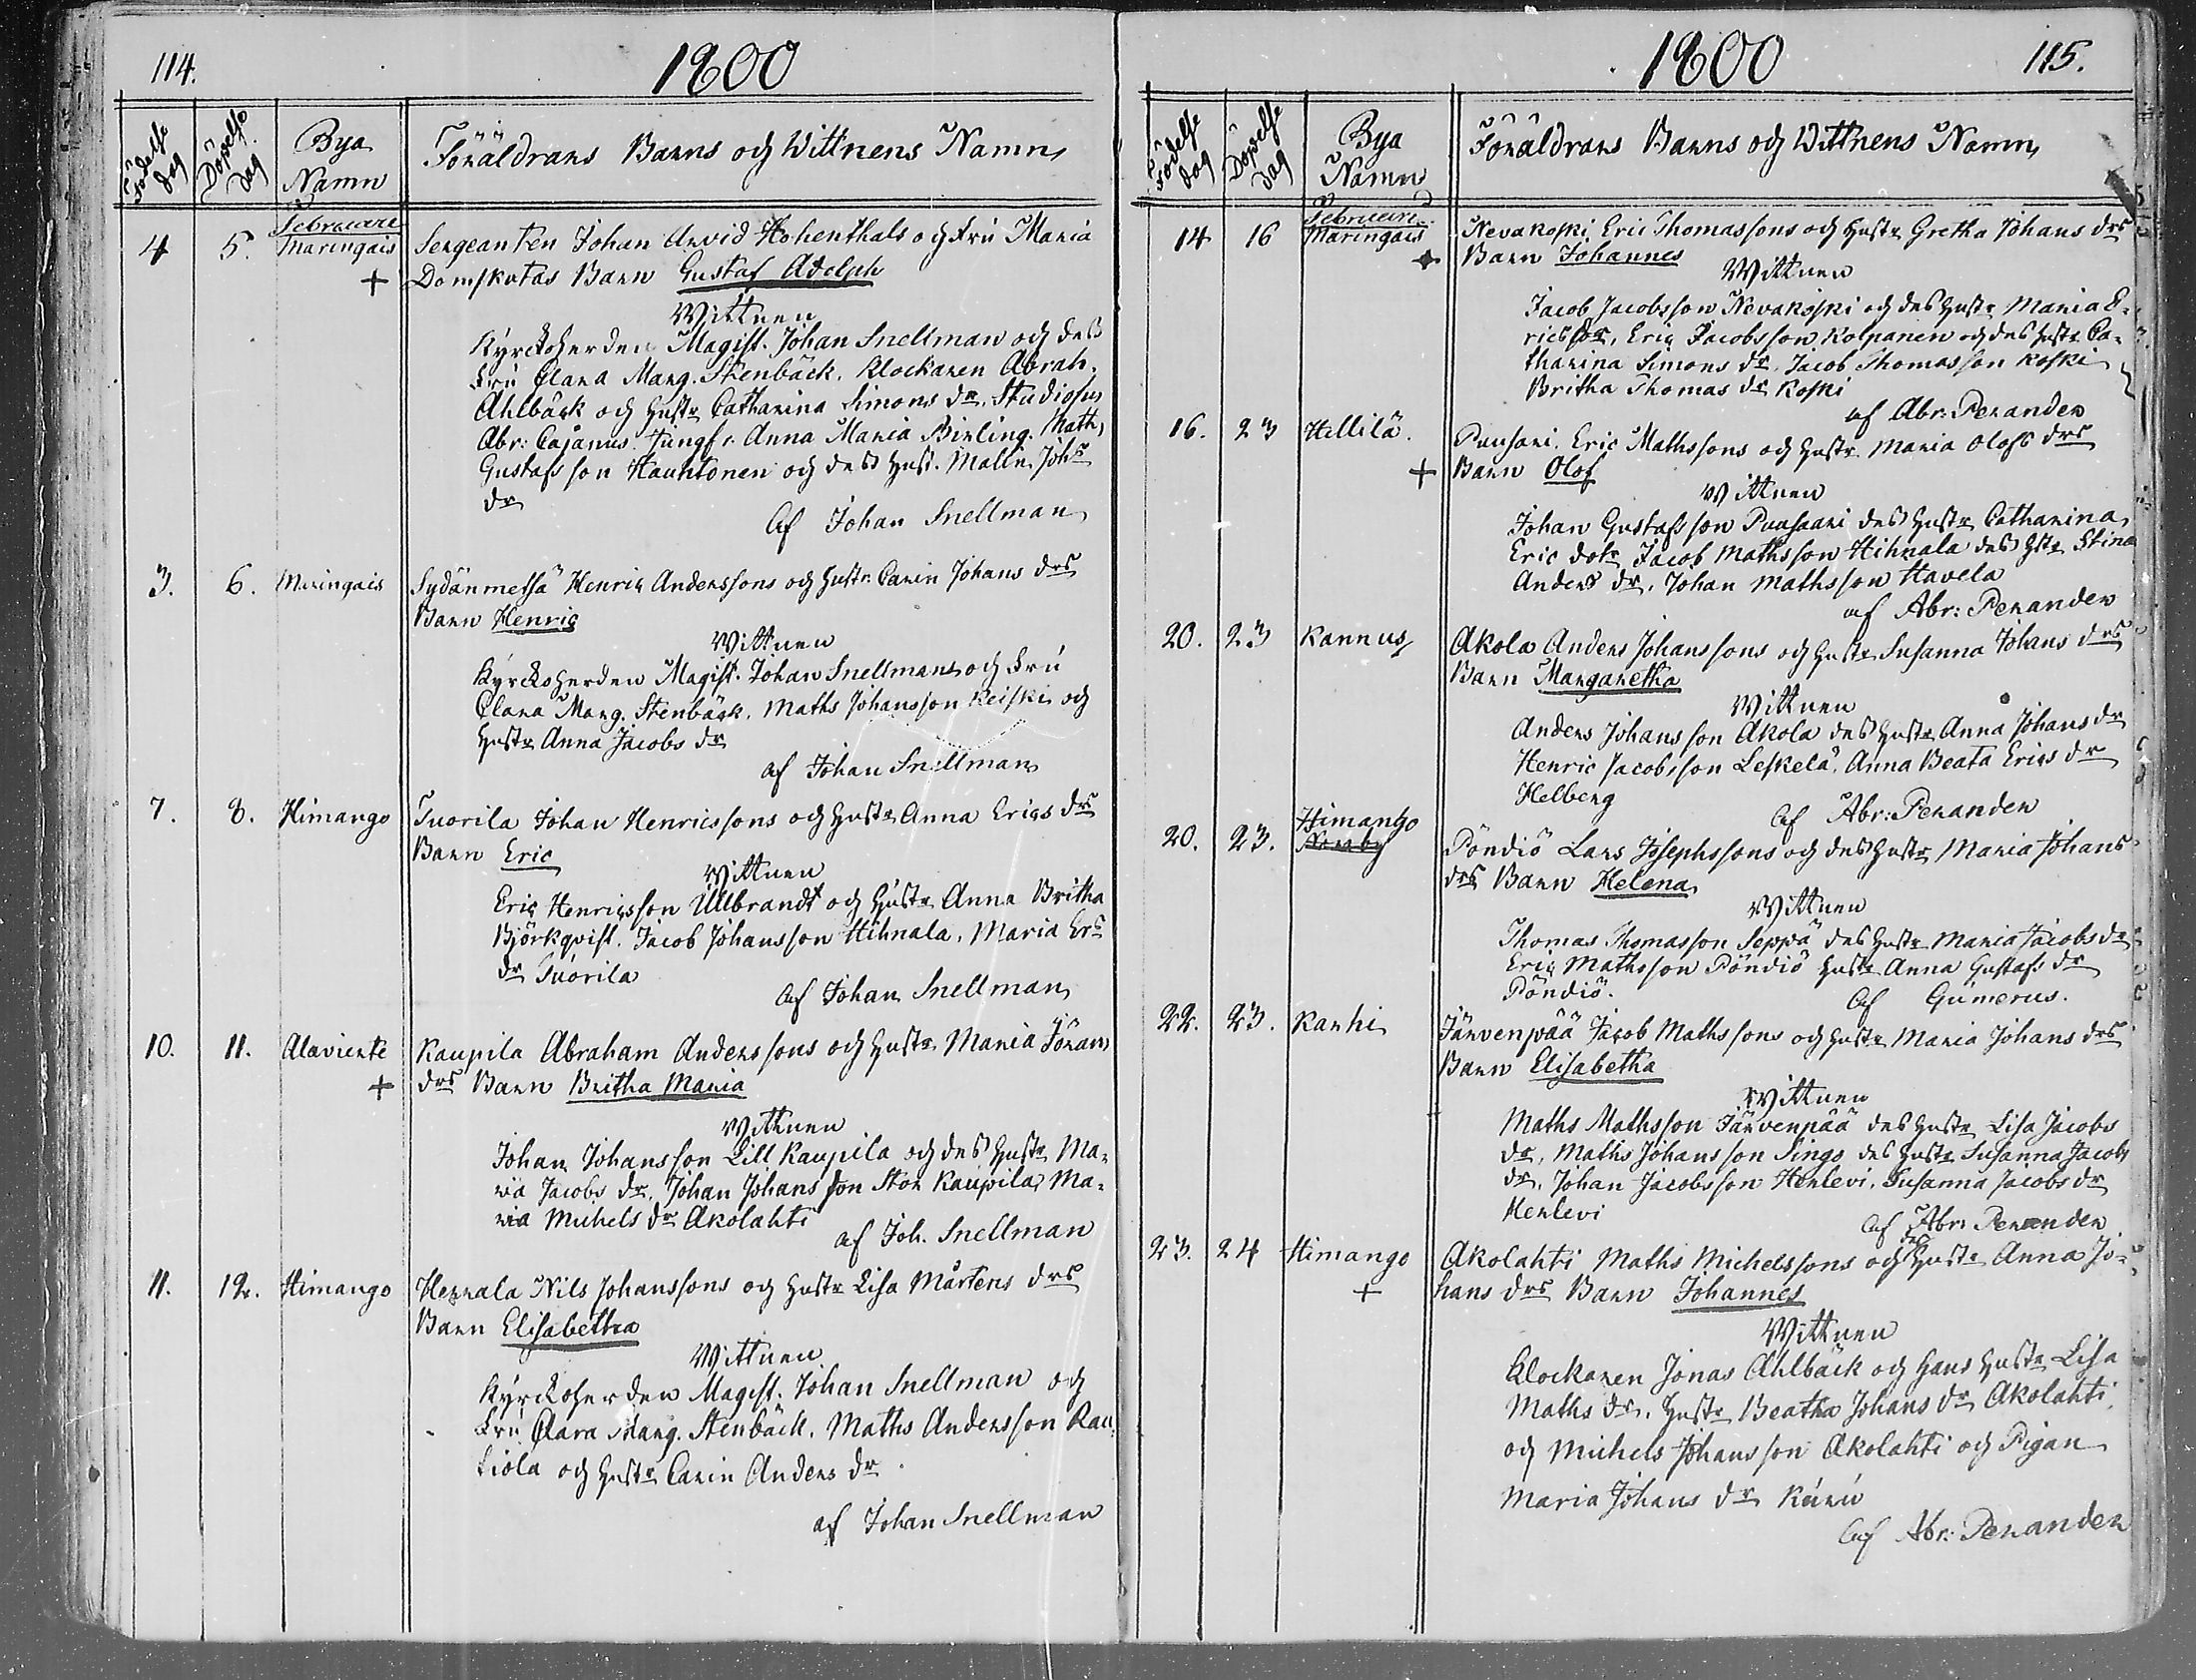 114.
1800
Födelse dag
Döpelse dag
Bya Namn
Föräldrars Barns och Wittnens Namn
Februarii
4 5. Maringais Sergeanten Johan Arvid Hohenthals och Fru Maria
+ Domskatas Barn Gustaf Adolph
Wittnen
Kyrckoherden Magist. Johan Snellman och des
Fru Clara Marg. Stenbäck. Klockaren Abrah.
Ahlbäck och Hustr Catharina Simons dr. Studiosus
Abr: Cajanus. Jungfr. Anna Maria Birling. Math,
Gustafsson Hauhtonen och dess Hust. Malin Johs
dr
Af Johan Snellman
3. 6. Maringais Sydänmetsä Henric Anderssons och Hustr Carin Johans drs
Barn Henric
Wittnen
Kyrckoherden Magist. Johan Snellman och Fru
Clara Marg. Stenbäck. Maths Johansson Keiski och
Hustr Anna Jacobs dr
af Johan Snellman
7. 8. Himango Tuorila Johan Henricssons och Hustr Anna Erics drs
Barn Eric
Wittnen
Eric Henricsson Ullbrandt och Hustr Anna Britha
Björkqvist. Jacob Johansson Hihnala. Maria Ers
dr Tuorila
af Johan Snellman
10. 11. Alavierte Kaupila Abraham Anderssons och Hustr Maria Jöran
+ drs Barn Britha Maria
Wittnen
Johan Johansson Lill Kaupila och des Hustr Ma-
ria Jacobs dr. Johan Johansson Stor Kaupila, Ma-
ria Michels dr Akolahti
af Joh. Snellman
11. 12. Himango Herrala Nils Johanssons och Hustr Lisa Mårtens drs
Barn Elisabetha
Wittnen
Kyrckoherden Magist. Johan Snellman och
Fru Clara Marg. Stenbäck. Maths Andersson Rau
tiola och Hustr Carin Anders dr
af Johan Snellman
1800
115.
Födelse dag
Döpelse dag
Bya Namn
Föräldrars Barns och Wittnens Namn
Februarii
14 16 Maringais Nevakoski Eric Thomassons och Hustr Gretha Johans drs
+ Barn Johannes
Wittnen
Jacob Jacobsson Nevakoski och des Hustr Maria E-
rics dr, Eric Jacobsson Kolpanen och des Hustr Ca-
tharina Simons dr. Jacob Thomasson Koski
Britha Thomas dr Koski
af Abr: Perander
16. 23 Hillilä. Puusari. Eric Mathssons och Hustr Maria Olofs drs
+ Barn Olof
Wittnen
Johan Gustafsson Puusaari des Hustr Catharina
Eric dotr Jacob Mathsson Hihnala des Hstr Stina
Anders dr. Johan Mathsson Havela
af Abr: Perander
20. 23 Kannus Akola Anders Johanssons och Hustr Susanna Johans drs
Barn Margaretha
Wittnen
Anders Johansson Akola des Hustr Anna Johans dr
Henric Jacobsson Leskelä. Anna Beata Erics dr
Helberg
Af Abr: Perander
20. 23. Himango Pöndiö Lars Josephssons och des Hustr Maria Johans
drs Barn Helena
Wittnen
Thomas Thomasson Seppä des Hustr Maria Jacobs dr
Eric Mathsson Pöndiö Hustr Anna Gustafs dr
Pöndiö.
Af Gumerus.
22. 23. Karhi Järvenpää Jacob Mathssons och Hustr Maria Johans drs
Barn Elisabetha
Wittnen
Maths Mathsson Järvenpää des Hustr Lisa Jacobs
dr, Maths Johansson Singo des Hustr Susanna Jacobs
dr. Johan Jacobsson Herlevi. Susanna Jacobs dr
Herlevi
af Abr: Perander
23. 24 Himango Akolahti Maths Michelssons och Hustr Anna Jo-
+ hans drs Barn Johannes
Wittnen
Klockaren Jonas Ahlbäck och hans Hustr Lisa
Maths dr. Hustr Beatha Johans dr Akolahti.
och Michels Johansson Akolahti och Pigan
Maria Johans dr
Af Abr: Perander